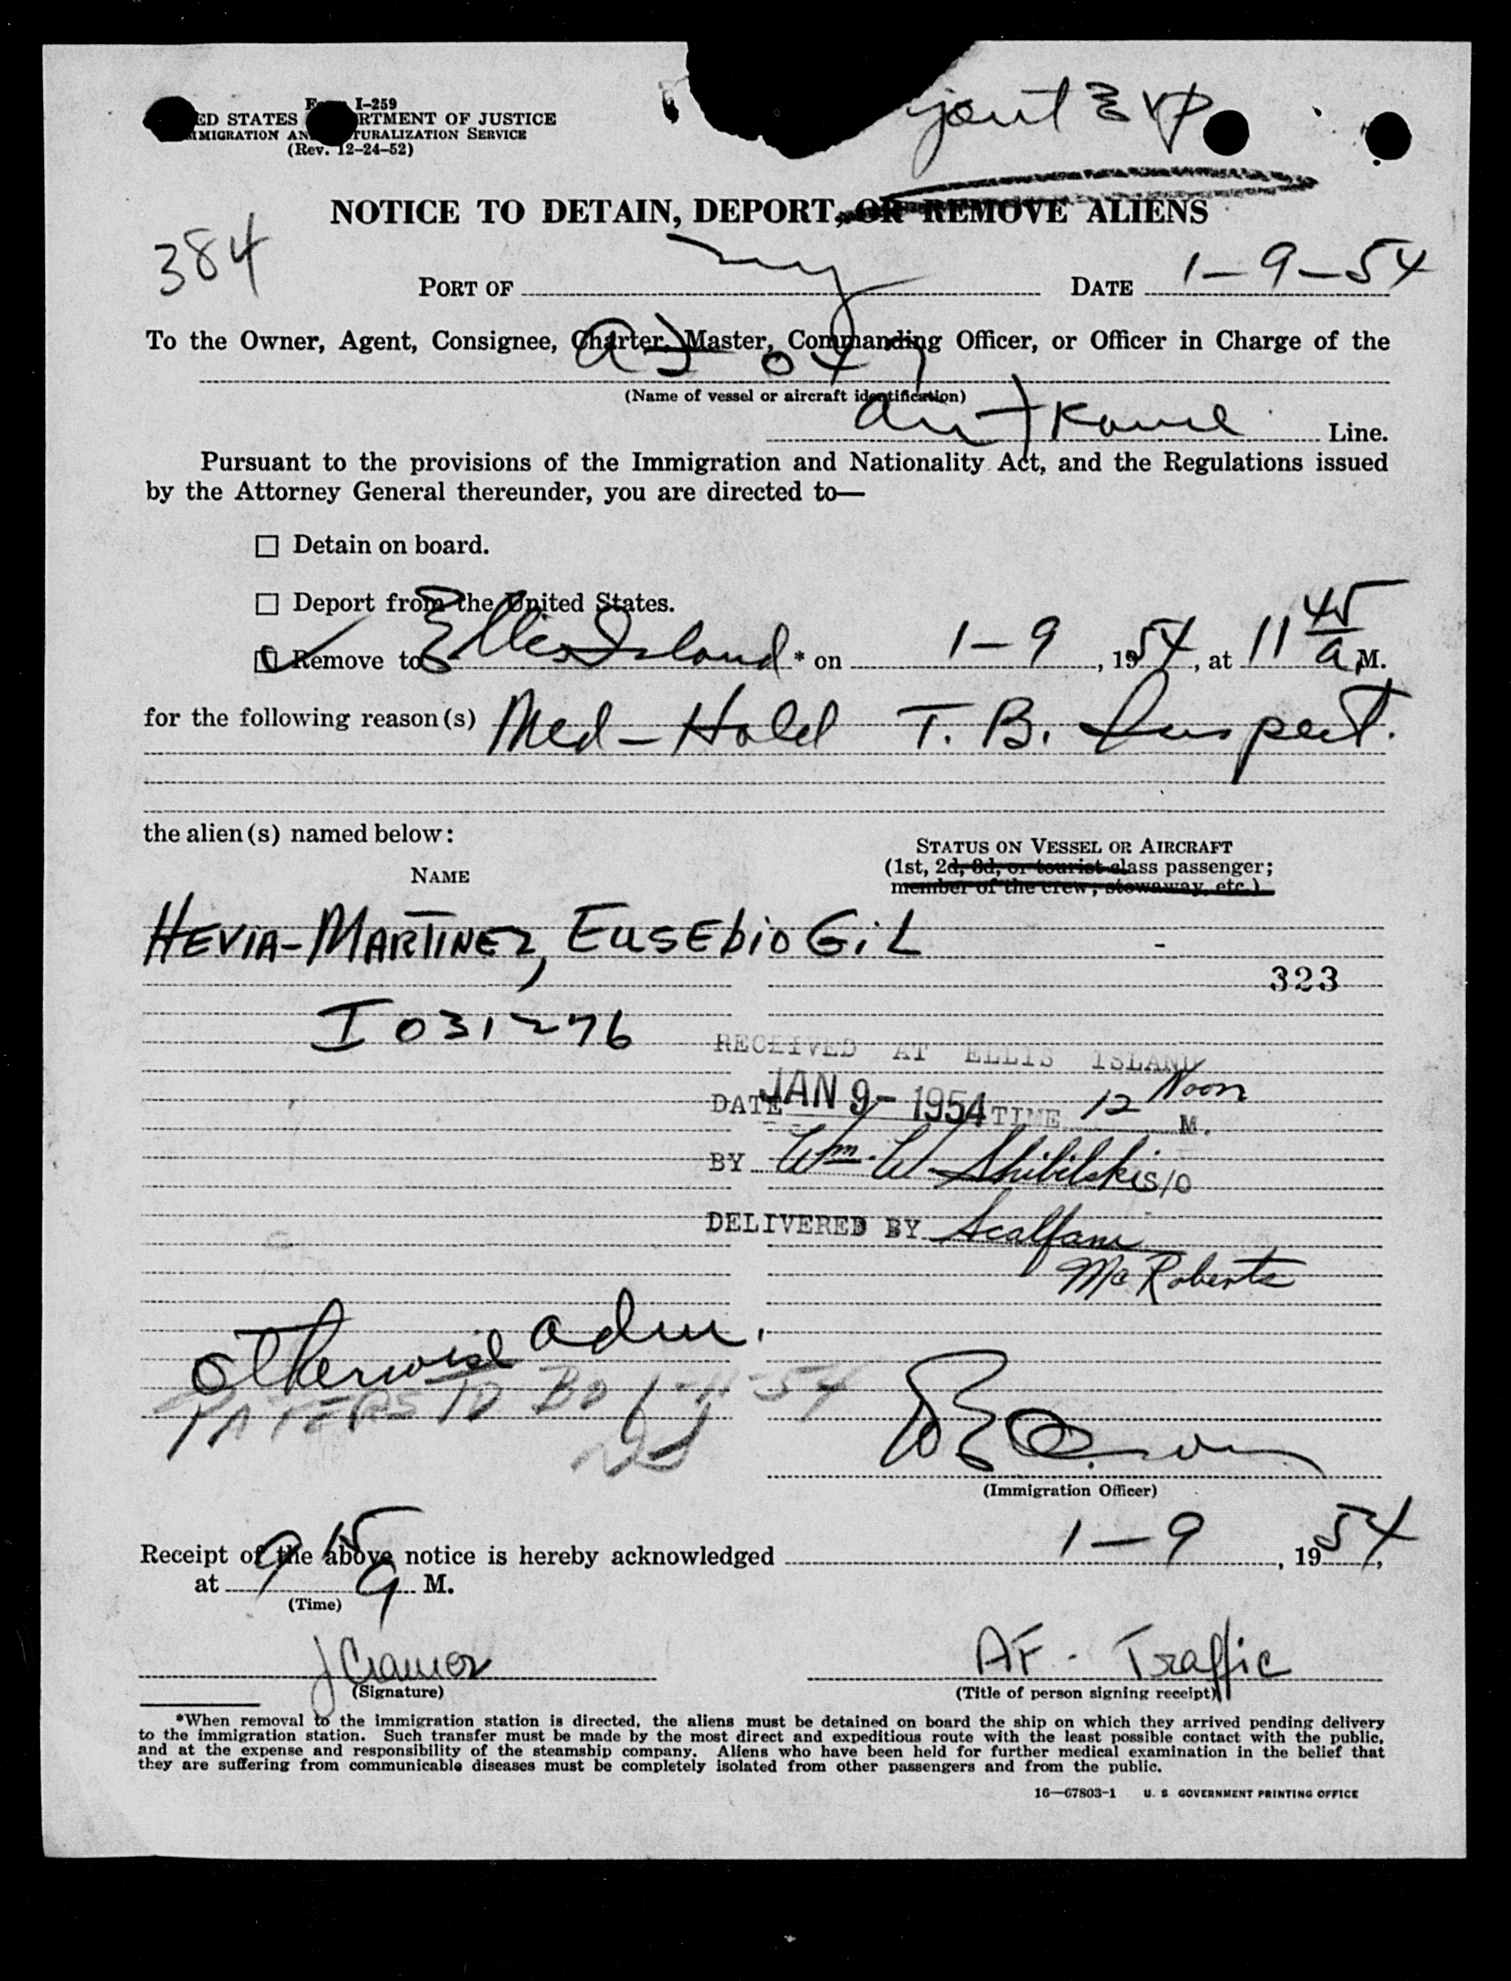 I-259
ED STATES RTMENT OF JUSTICE
MMIGRATION AN TURALIZATION SERVICE
(Rev. 12-24-52)
NOTICE TO DETAIN, DEPORT, OR REMOVE ALIENS
384
PORT OF ny DATE 1-9-54
To the Owner, Agent, Consignee, Charter, Master, Commanding Officer, or Officer in Charge of the
047
(Name of vessel or aircraft identification)
Air France Line.
Pursuant to the provisions of the Immigration and Nationality Act, and the Regulations issued
by the Attorney General thereunder, you are directed to—
☐ Detain on board.
☐ Deport from the United States.
Remove to Ellis Island * on 1-9, 1954, at 11 45 a M.
for the following reason(s) Med-Hold T.B. Suspect.
the alien(s) named below:
STATUS ON VESSEL OR AIRCRAFT
(1st, 2d, 3d, or tourist class passenger;
member of the crew; stowaway, etc.)
NAME
HEVIA-MARTINEZ, EUSEbio GiL
323
I 031276
RECEIVED AT ELLIS ISLAND
DATE JAN 9- 1954 TIME 12 Noon M.
BY Wm. W. Shibilski S/O
DELIVERED BY Scalfani
Mc Roberts
otherwise adm.
PAPERS TO BO 1-11-54
(Immigration Officer)
Receipt of the above notice is hereby acknowledged 1-9, 1954,
at 9 15 a M.
(Time)
J Cramer AF. Traffic
(Signature) (Title of person signing receipt)
*When removal to the immigration station is directed, the aliens must be detained on board the ship on which they arrived pending delivery
to the immigration station. Such transfer must be made by the most direct and expeditious route with the least possible contact with the public,
and at the expense and responsibility of the steamship company. Aliens who have been held for further medical examination in the belief that
they are suffering from communicable diseases must be completely isolated from other passengers and from the public.
16—67803-1 U. S. GOVERNMENT PRINTING OFFICE